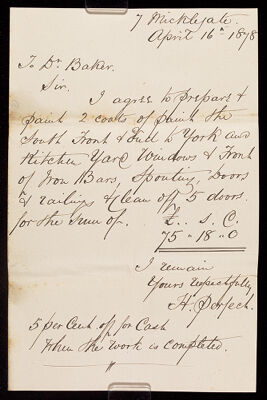 7 Micklegate.
April 16th 1878
To Dr Baker.
Sir,
I agree to prepare &
paint 2 coats of paint the
South Front & End to York and
Kitchen Yard Windows & Front
of Iron Bars, Spouting, Doors
& railings & clean off 5 doors.
for the Sum of. £.. s. 
75 " 18 " 0
I remain
Yours respectfully
H. Perfect.
5 per Cent. off for Cash
when the work is completed.